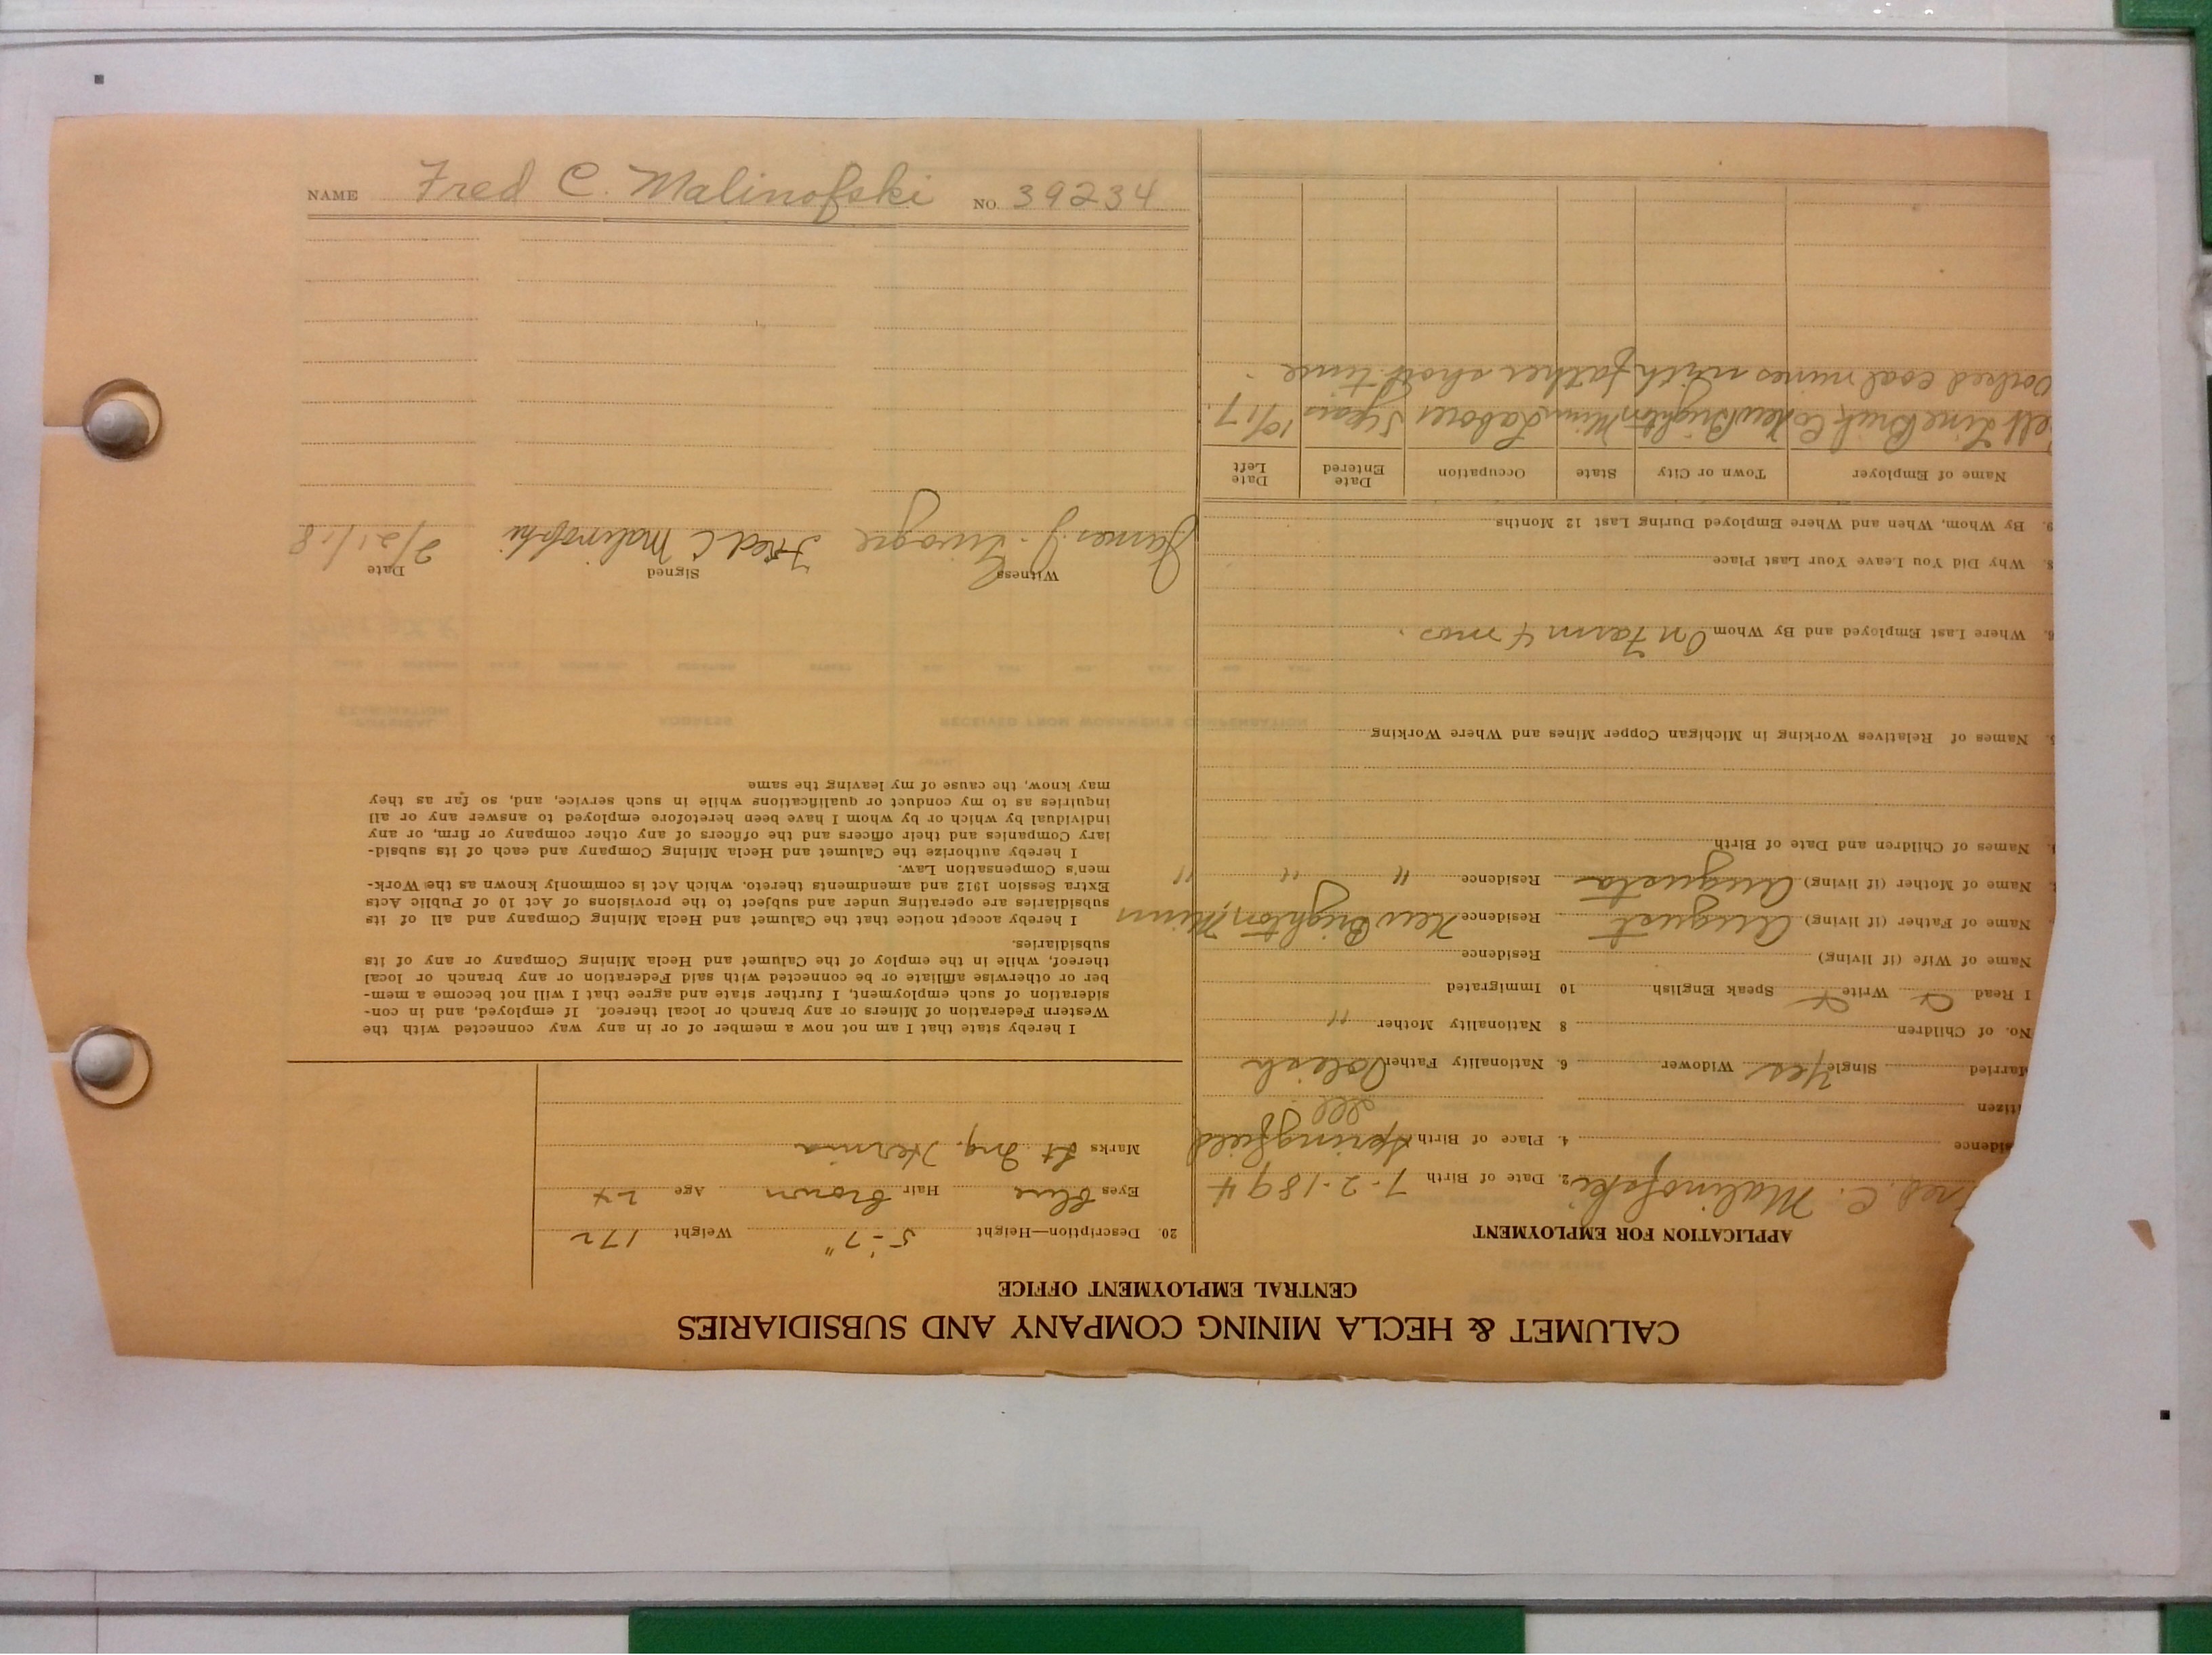 CALUMET & HECLA MINING COMPANY AND SUBSIDIARIES
CENTRAL EMPLOYMENT OFFICE
APPLICATION FOR EMPLOYMENT
Fred. C. Malinofski 2. Date of Birth 7-2-1894
sidence 4. Place of Birth Springfield
Ill
itizen
Married Single Yes Widower 6. Nationality Father Polish
No. of Children 8 Nationality Mother "
I Read Write Speak English 10 Immigrated
Name of Wife (if living) Residence
Name of Father (if living) August Residence New Brighton, Minn
Name of Mother (if living) Augusta Residence " " "
Names of Children and Date of Birth
Names of Relatives Working in Michigan Copper Mines and Where Working
Where Last Employed and By Whom On Farm 4 mos.
Why Did You Leave Your Last Place
9. By Whom, When and Where Employed During Last 12 Months
Name of Employer Town or City State Occupation Date Entered Date Left
elt Line Brick Co New Brighton Minn Laborer 5 years 10/17.
orked coal mines with father short time.
20. Description—Height 5'-7" Weight 172
Eyes blue Hair brown Age 24
Marks Lt Ing. Hernia
I hereby state that I am not now a member of or in any way connected with the
Western Federation of Miners or any branch or local thereof. If employed, and in con-
sideration of such employment, I further state and agree that I will not become a mem-
ber or otherwise affiliate or be connected with said Federation or any branch or local
thereof, while in the employ of the Calumet and Hecla Mining Company or any of its
subsidiaries.
I hereby accept notice that the Calumet and Hecla Mining Company and all of its
subsidiaries are operating under and subject to the provisions of Act 10 of Public Acts
Extra Session 1912 and amendments thereto, which Act is commonly known as the Work-
men's Compensation Law.
I hereby authorize the Calumet and Hecla Mining Company and each of its subsid-
iary Companies and their officers and the officers of any other company or firm, or any
individual by which or by whom I have been heretofore employed to answer any or all
inquiries as to my conduct or qualifications while in such service, and, so far as they
may know, the cause of my leaving the same
Witness Signed Date
James J. Fred C Malinofski 2/21/18
NAME Fred C. Malinofski NO. 39234